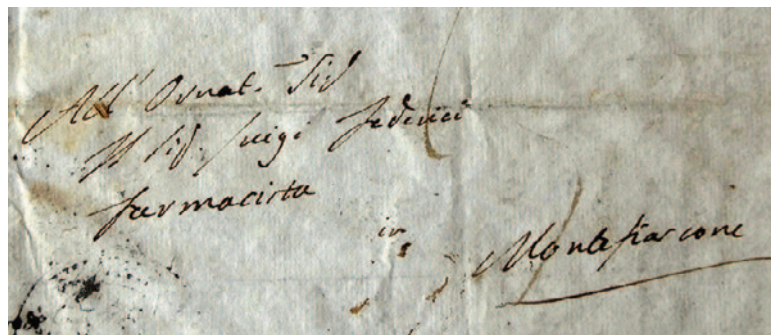 All' Ornat. Sig
Il Sig. Luigi Federici
Farmacista
in
Montefiascone